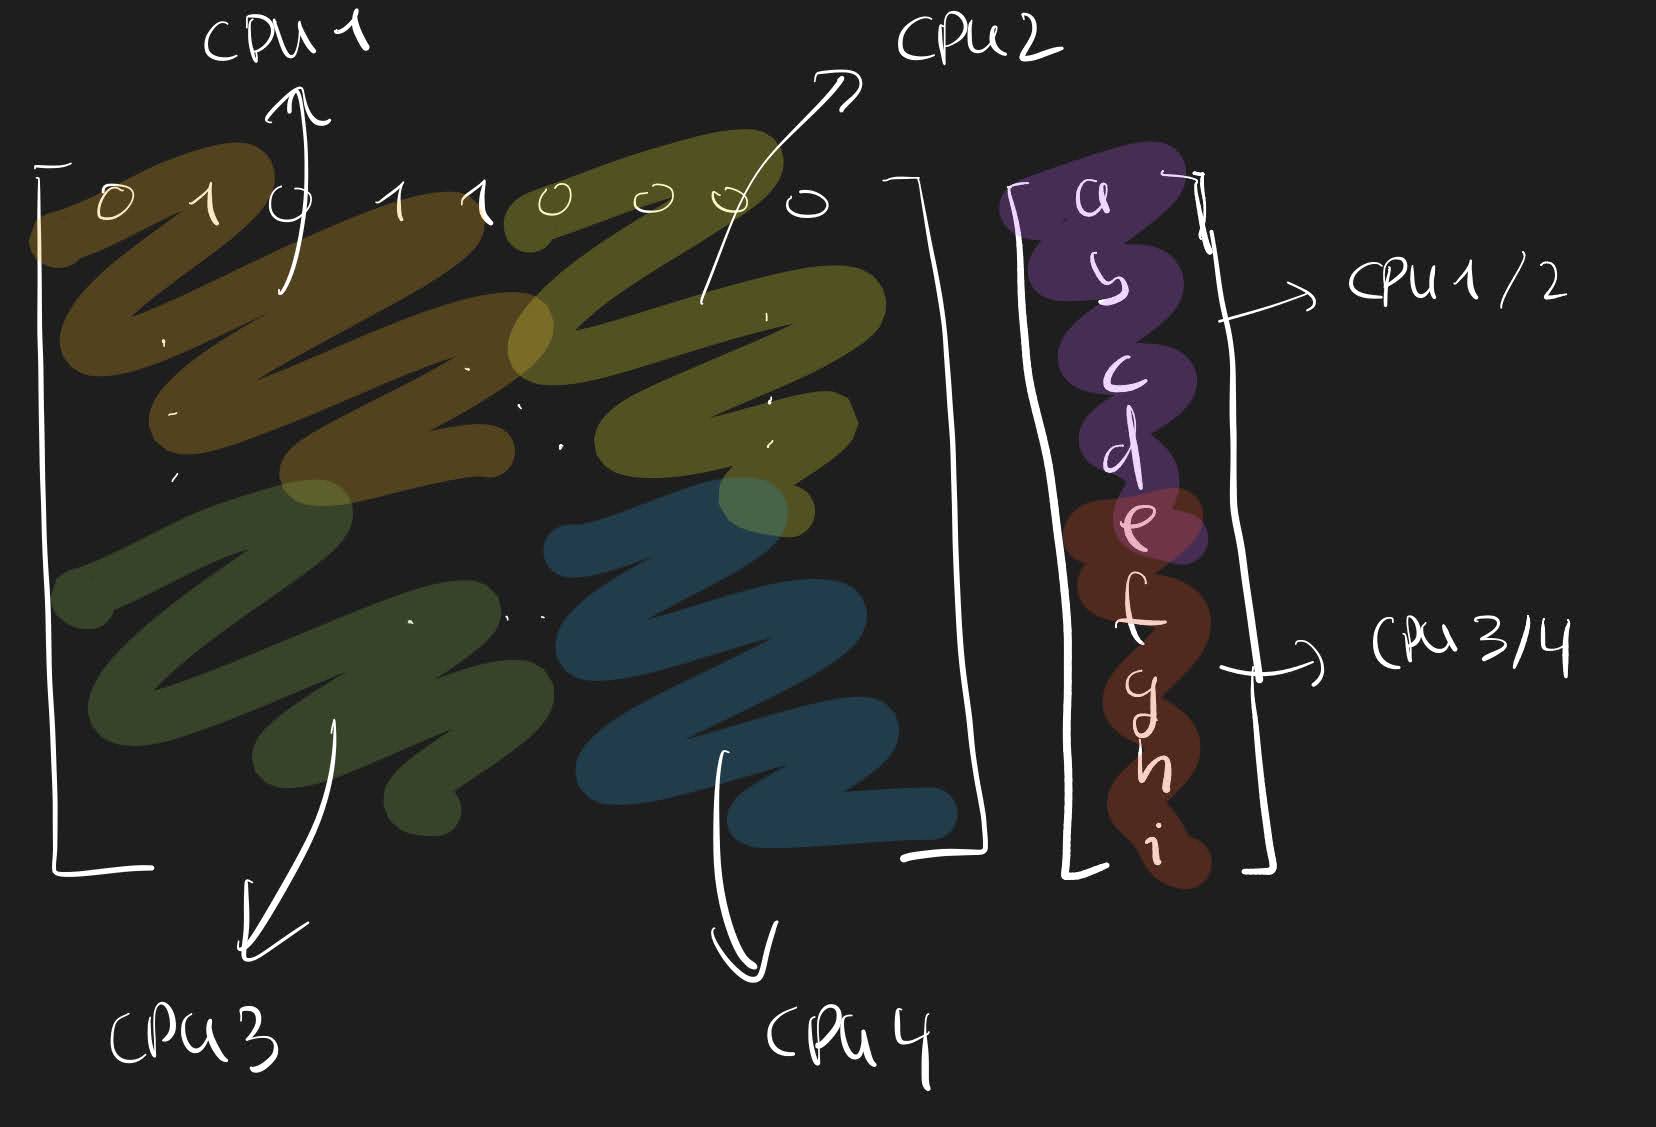 CPU 1 CPU 2
0 1 0 1 1 0 0 0 0
a
b
c
d
e
f
g
h
i
CPU 1/2
CPU 3/4
CPU 3 CPU 4